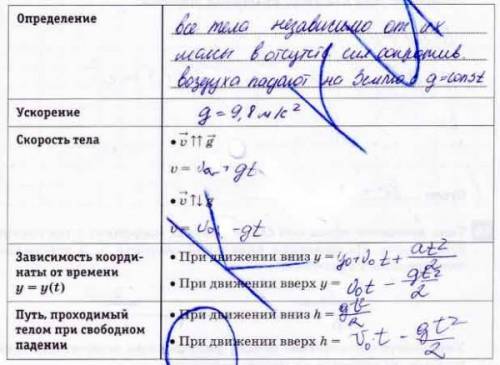 Определение
все тела независимо от их
массы в отсутств сил сопротив.
воздуха падают на Землю с g=const
Ускорение
g = 9,8 м/с²
Скорость тела
• v⃗ ↑↑ g⃗
v = v₀ + gt
• v⃗ ↑↓ g⃗
v = v₀ - gt
Зависимость коорди-
наты от времени
y = y(t)
• При движении вниз y = y₀+v₀t+at²/2
• При движении вверх y = v₀t - gt²/2
Путь, проходимый
телом при свободном
падении
• При движении вниз h = gt²/2
• При движении вверх h = v₀·t - gt²/2